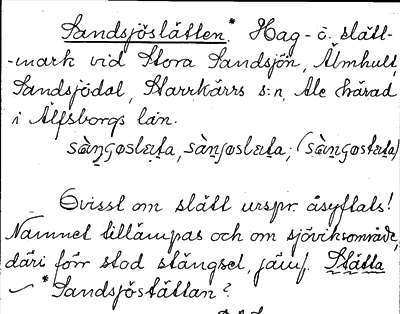 Sandsjöslätten.* Hag- o. slätt-
-mark vid Stora Sandsjön, Älmhult,
Sandsjödal, Starrkärrs s:n, Ale härad
i Älfsborgs län.
Ovisst om slätt urspr. åsyftats!
Namnet tillämpas och om sjöviksområde,
däri förr stod stängsel, jämf. Stätta
*Sandsjöstättan?